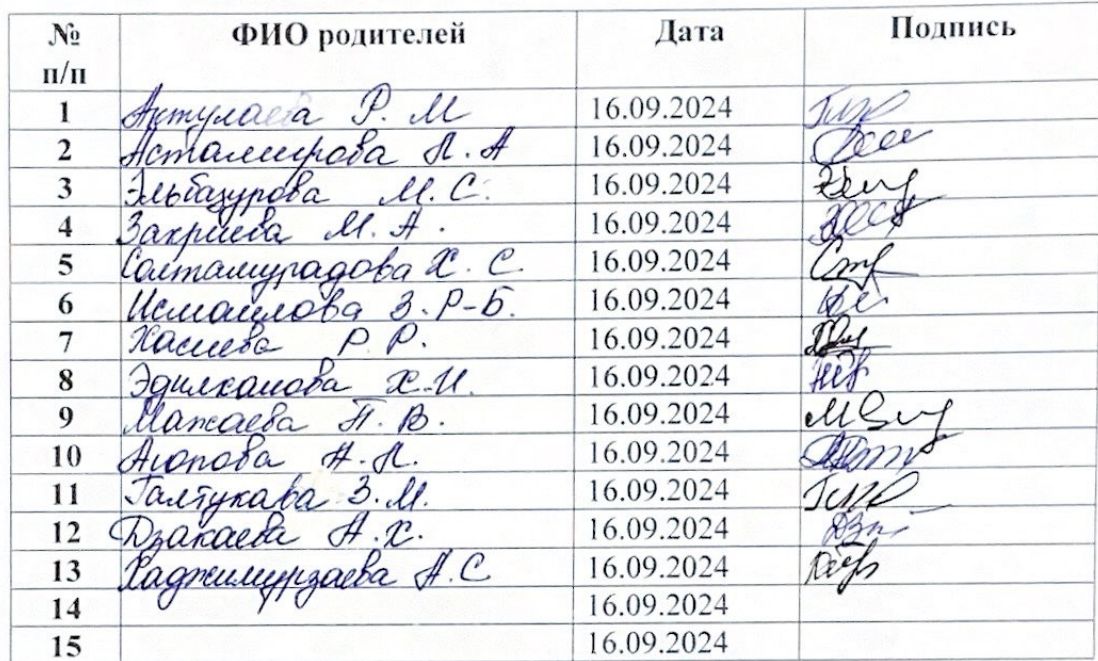 № п/п ФИО родителей Дата Подпись
1 Актулаева Р. М 16.09.2024
2 Асталмирова Л. А 16.09.2024
3 Эльбазурова М. С. 16.09.2024
4 Закриева М. А. 16.09.2024
5 Солтамурадова Х. С. 16.09.2024
6 Исмаилова З. Р-Б. 16.09.2024
7 Хасиева Р. Р. 16.09.2024
8 Эдилханова Х-И. 16.09.2024
9 Мажаева П. В. 16.09.2024
10 Аюпова А. Л. 16.09.2024
11 Галтукава З. М. 16.09.2024
12 Дзакаева А. Х. 16.09.2024
13 Хаджимурзаева А. С 16.09.2024
14 16.09.2024
15 16.09.2024